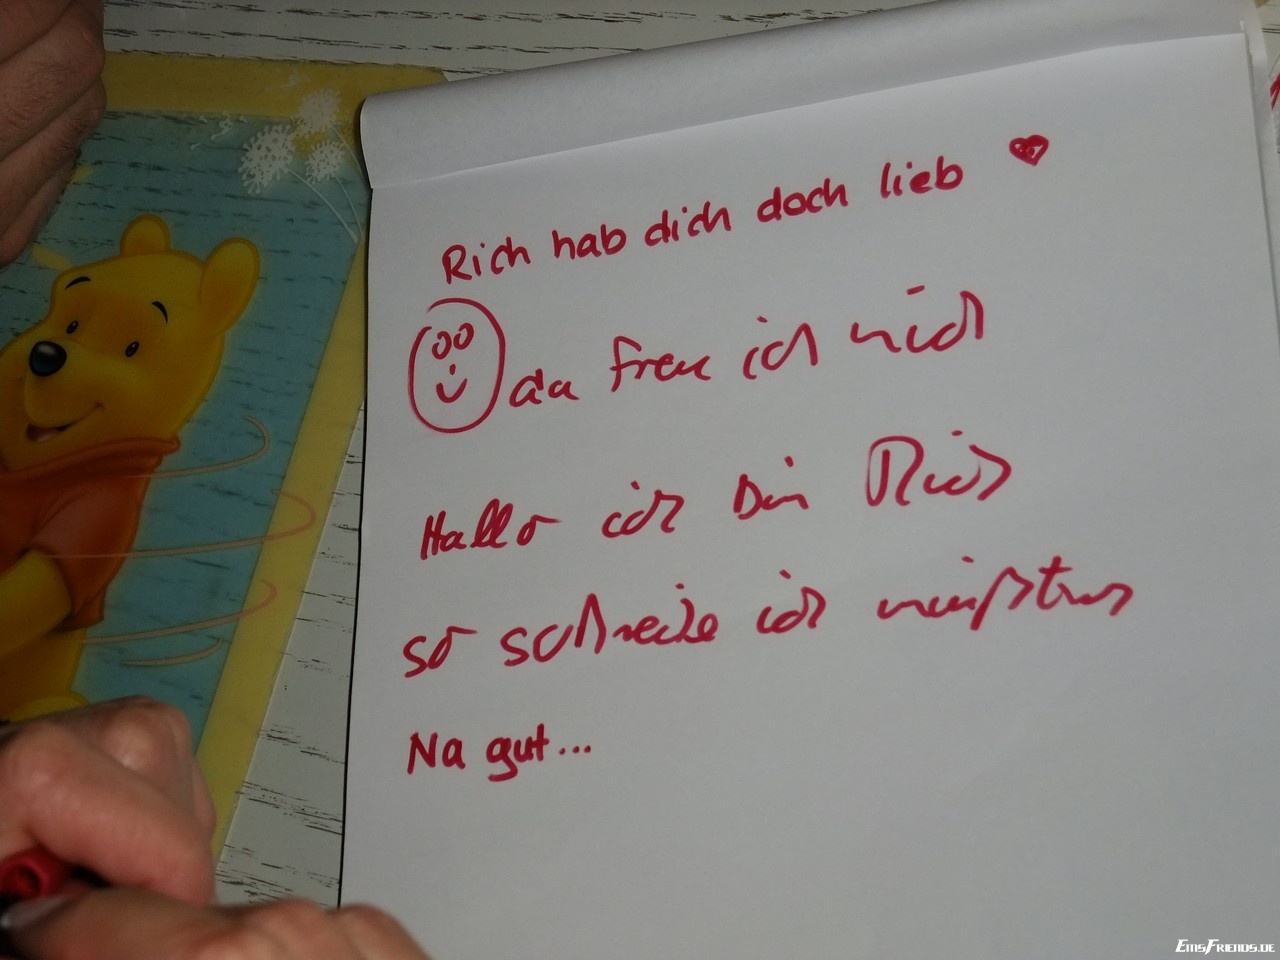 Rich hab dich doch lieb ♥
da freu ich mich
Hallo ich bin Rich
so schreibe ich meistens
Na gut...
EmsFriends.de